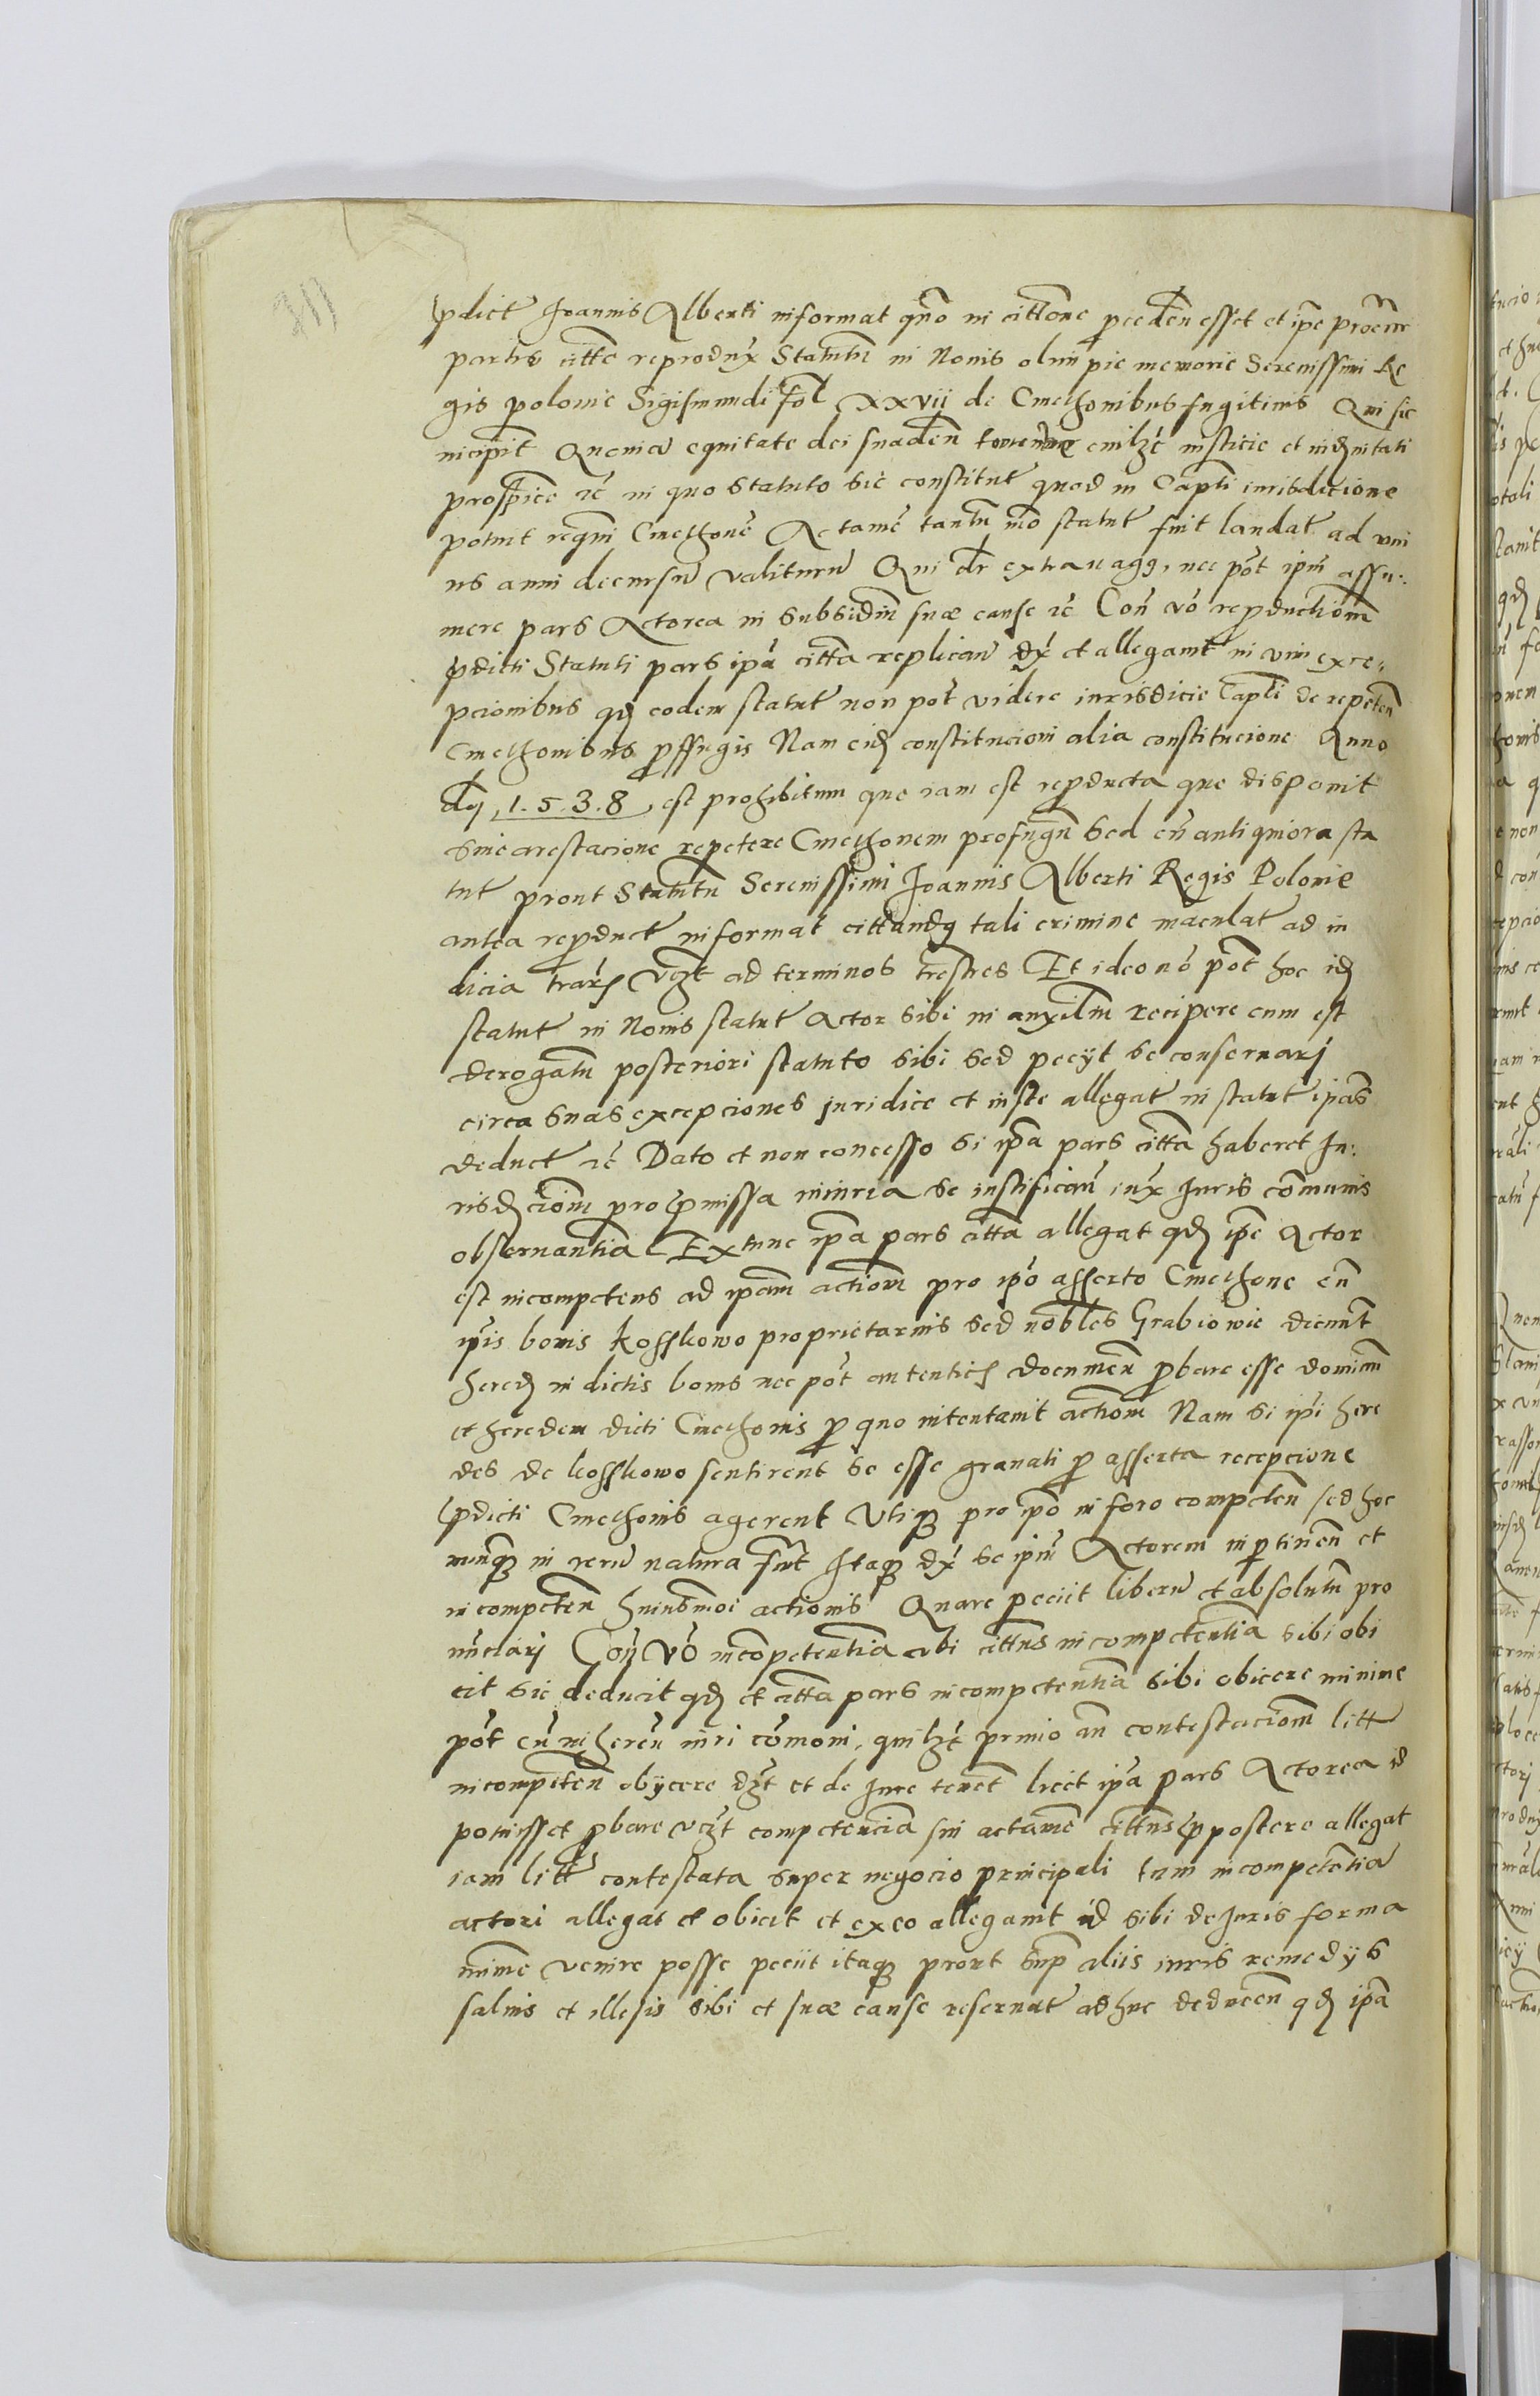 311
pdict Joannis Alberti informat qno in cittone preceden esset et ipe procur
partis citte reprodux Statutu in Nouis olim pie memorie Serenissimi Re
gis polonie Sigismundi fol xxvii de Cmethonibus fugitiuis Qui sic
incipit Quonia equitate dei suaden tenemur cuilzt insticie et indemnitati
prospice zc in quo Statuto sic constitut quod in Capti iurisdictione
potuit requiri Cmethone Actame tantu mo statut fuit laudat ad uni
us anni decursu valituru Qui dr extrauagg, nec pot ipm assu:
mere pars Actorea in subsidiu suæ cause zc Con vo reproductiom
pdicti Statuti pars ipa citta replican dx et allegauit in vim exce,
pcionibus qd eodem statut non pot videre iurisdicie Capti de repeten
Cmethonibus proffugis Nam eid constitucioni alia constitucione Anno
dni 1.5.3.8, est prohibitum que iam est reproducta que disponit
sine arestacione repetere Cmethonem profugu Sed eu antiquiora sta
tut prout Statutu Serenissimi Joannis Alberti Regis Polonie
antea reproduct informat cittandu tali crimine maculat ad iu
dicia trahi vzt ad terminos trestres Et ideo no pot hoc id
statut in Nouis statut actor sibi in auxiliu recipere cum est
derogatu posteriori statuto sibi sed peeyt se conseruari
circa suas excepciones juridice et iuste allegat in statut ipas
deduct zc Dato et non concesso si ipa pars citta haberet Ju:
risdiciom pro pmissa iniuria se iustifican iux Juris communis
obseruantia Extunc ipa pars citta allegat qd ipe Actor
est incompetens ad ipam actiom pro ipo asserto Cmethone cu
ipis bonis Kosskowo proprietariis sed nobles Grabiowie dicunt
hered in dictis bonis nec pot autentick documen probare esse dominum
et heredem dicti Cmethonis pro quo intentauit actiom Nam si ipi here
des de Kosskowo sentirent se esse grauati pro asserta recepcione
pdicti Cmethonis agerent Utiq pro ipo in foro competen sed hoc
nunq in reru natura fuit Itaq dx se ipm Actorem impertinen et
incompeten huiusmoi actionis Quare peciit liberu et absolutu pro
nunciari Con vo incompetentia ubi cittus incompetentia sibi obi
cit sic deducit qd et citta pars incompetentia sibi obicere minime
pot cu inheren iuri comoni, quilzt primo an contestaciom litt
incompeten obycere dzt et de Jure tenet licet ipa pars Actorea id
potuisset probare vzt competencia sui actame cittus ppostere allegat
iam litt contestata super negocio principali tum incompetentia
actori allegat et obicit et ex eo allegauit id sibi de Juris forma
minime venire posse peciit itaq prout sup aliis iuris remedys
saluis et illesis sibi et suæ cause reseruat adhuc deducen qd ipa